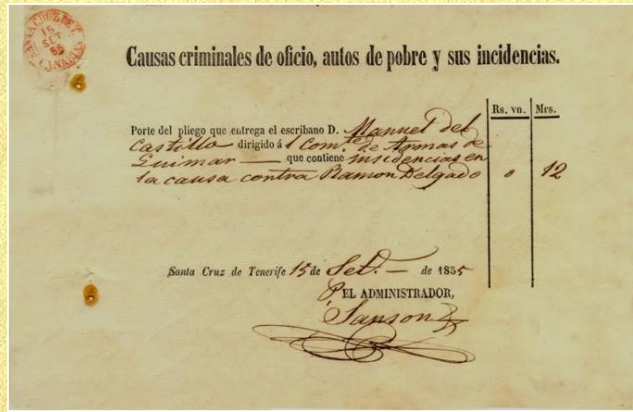 SANTA CRUZ DE T.
15
SET
55
CANARIAS
Causas criminales de oficio, autos de pobre y sus incidencias.
Rs. vn. Mrs.
Porte del pliego que entrega el escribano D. Manuel del
Castillo dirigido á l Comte. de Armas de
Guimar — que contiene insidencias en
la causa contra Ramon Delgado 0 12
Santa Cruz de Tenerife 15 de Set. — de 1855
P. EL ADMINISTRADOR,
Sanson